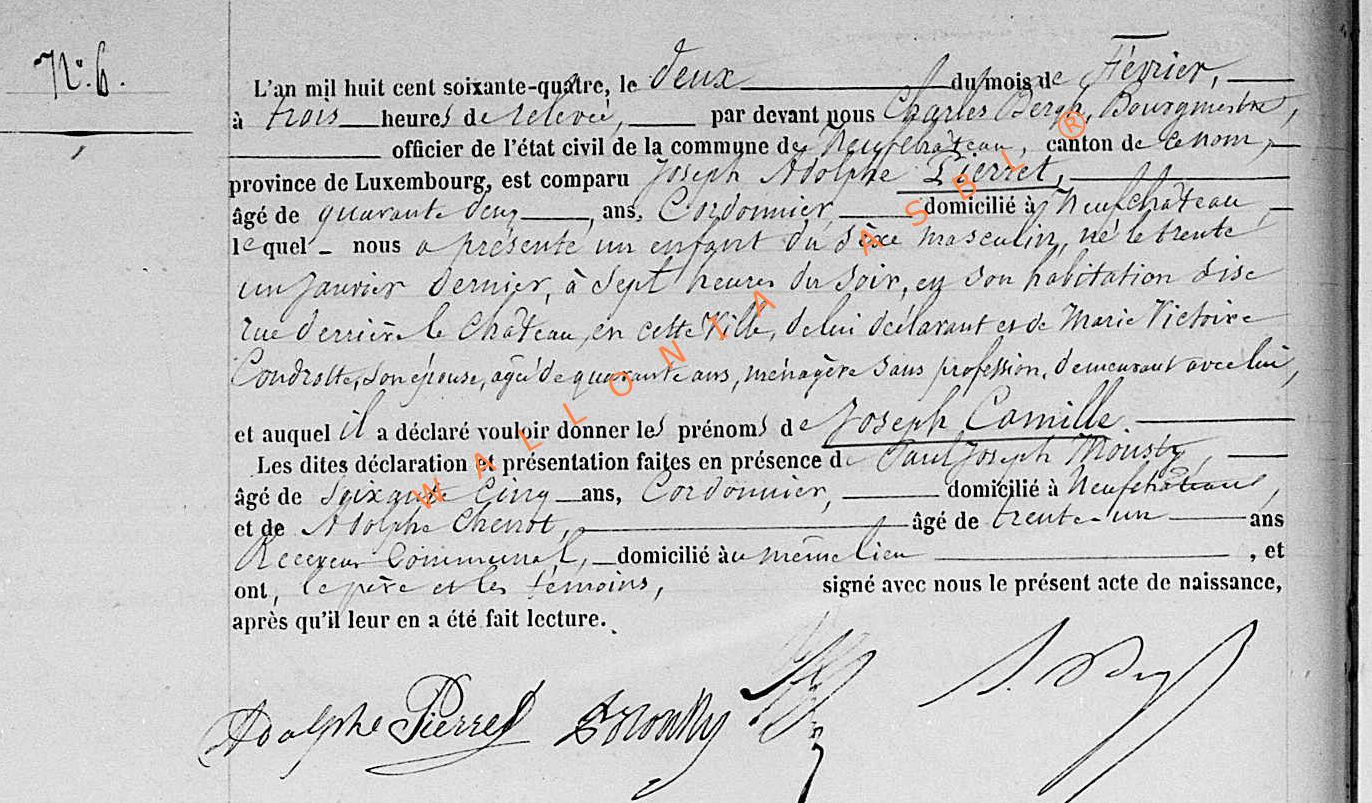 N° 6.
L'an mil huit cent soixante-quatre, le deux du mois de Février,
à trois heures de relevée, par devant nous Charles Bergh, Bourgmestre,
officier de l'état civil de la commune de Neufchâteau, canton de ce nom,
province de Luxembourg, est comparu Joseph Adolphe Pierret,
âgé de quarante deux, ans, Cordonnier, domicilié à Neufchâteau,
lequel nous a présenté un enfant du sèxe masculin, né le trente
un Janvier dernier, à sept heures du soir, en son habitation sise
rue derrière le Château, en cette Ville, de lui déclarant et de Marie Victoire
Condrotte, son épouse, agée de quarante ans, ménagère sans profession, demeurant avec lui,
et auquel il a déclaré vouloir donner les prénoms de Joseph Camille.
Les dites déclaration et présentation faites en présence de Paul Joseph Mousty,
âgé de Soixante Cinq ans, Cordonnier, domicilié à Neufchâteau,
et de Adolphe Chenot, âgé de trente-un ans
Receveur Communal, domicilié au même lieu , et
ont, le père et les témoins, signé avec nous le présent acte de naissance,
après qu'il leur en a été fait lecture.
Adolphe Pierret
WALLONIA ASBL ®